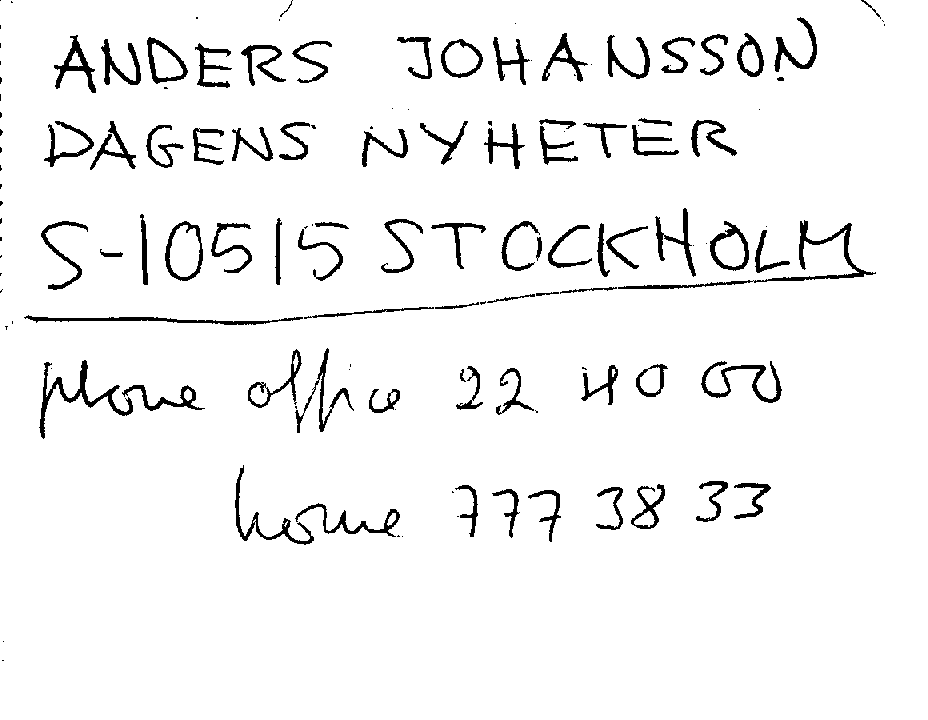 ANDERS JOHANSSON
DAGENS NYHETER
S-10515 STOCKHOLM
phone office 22 40 00
home 777 38 33